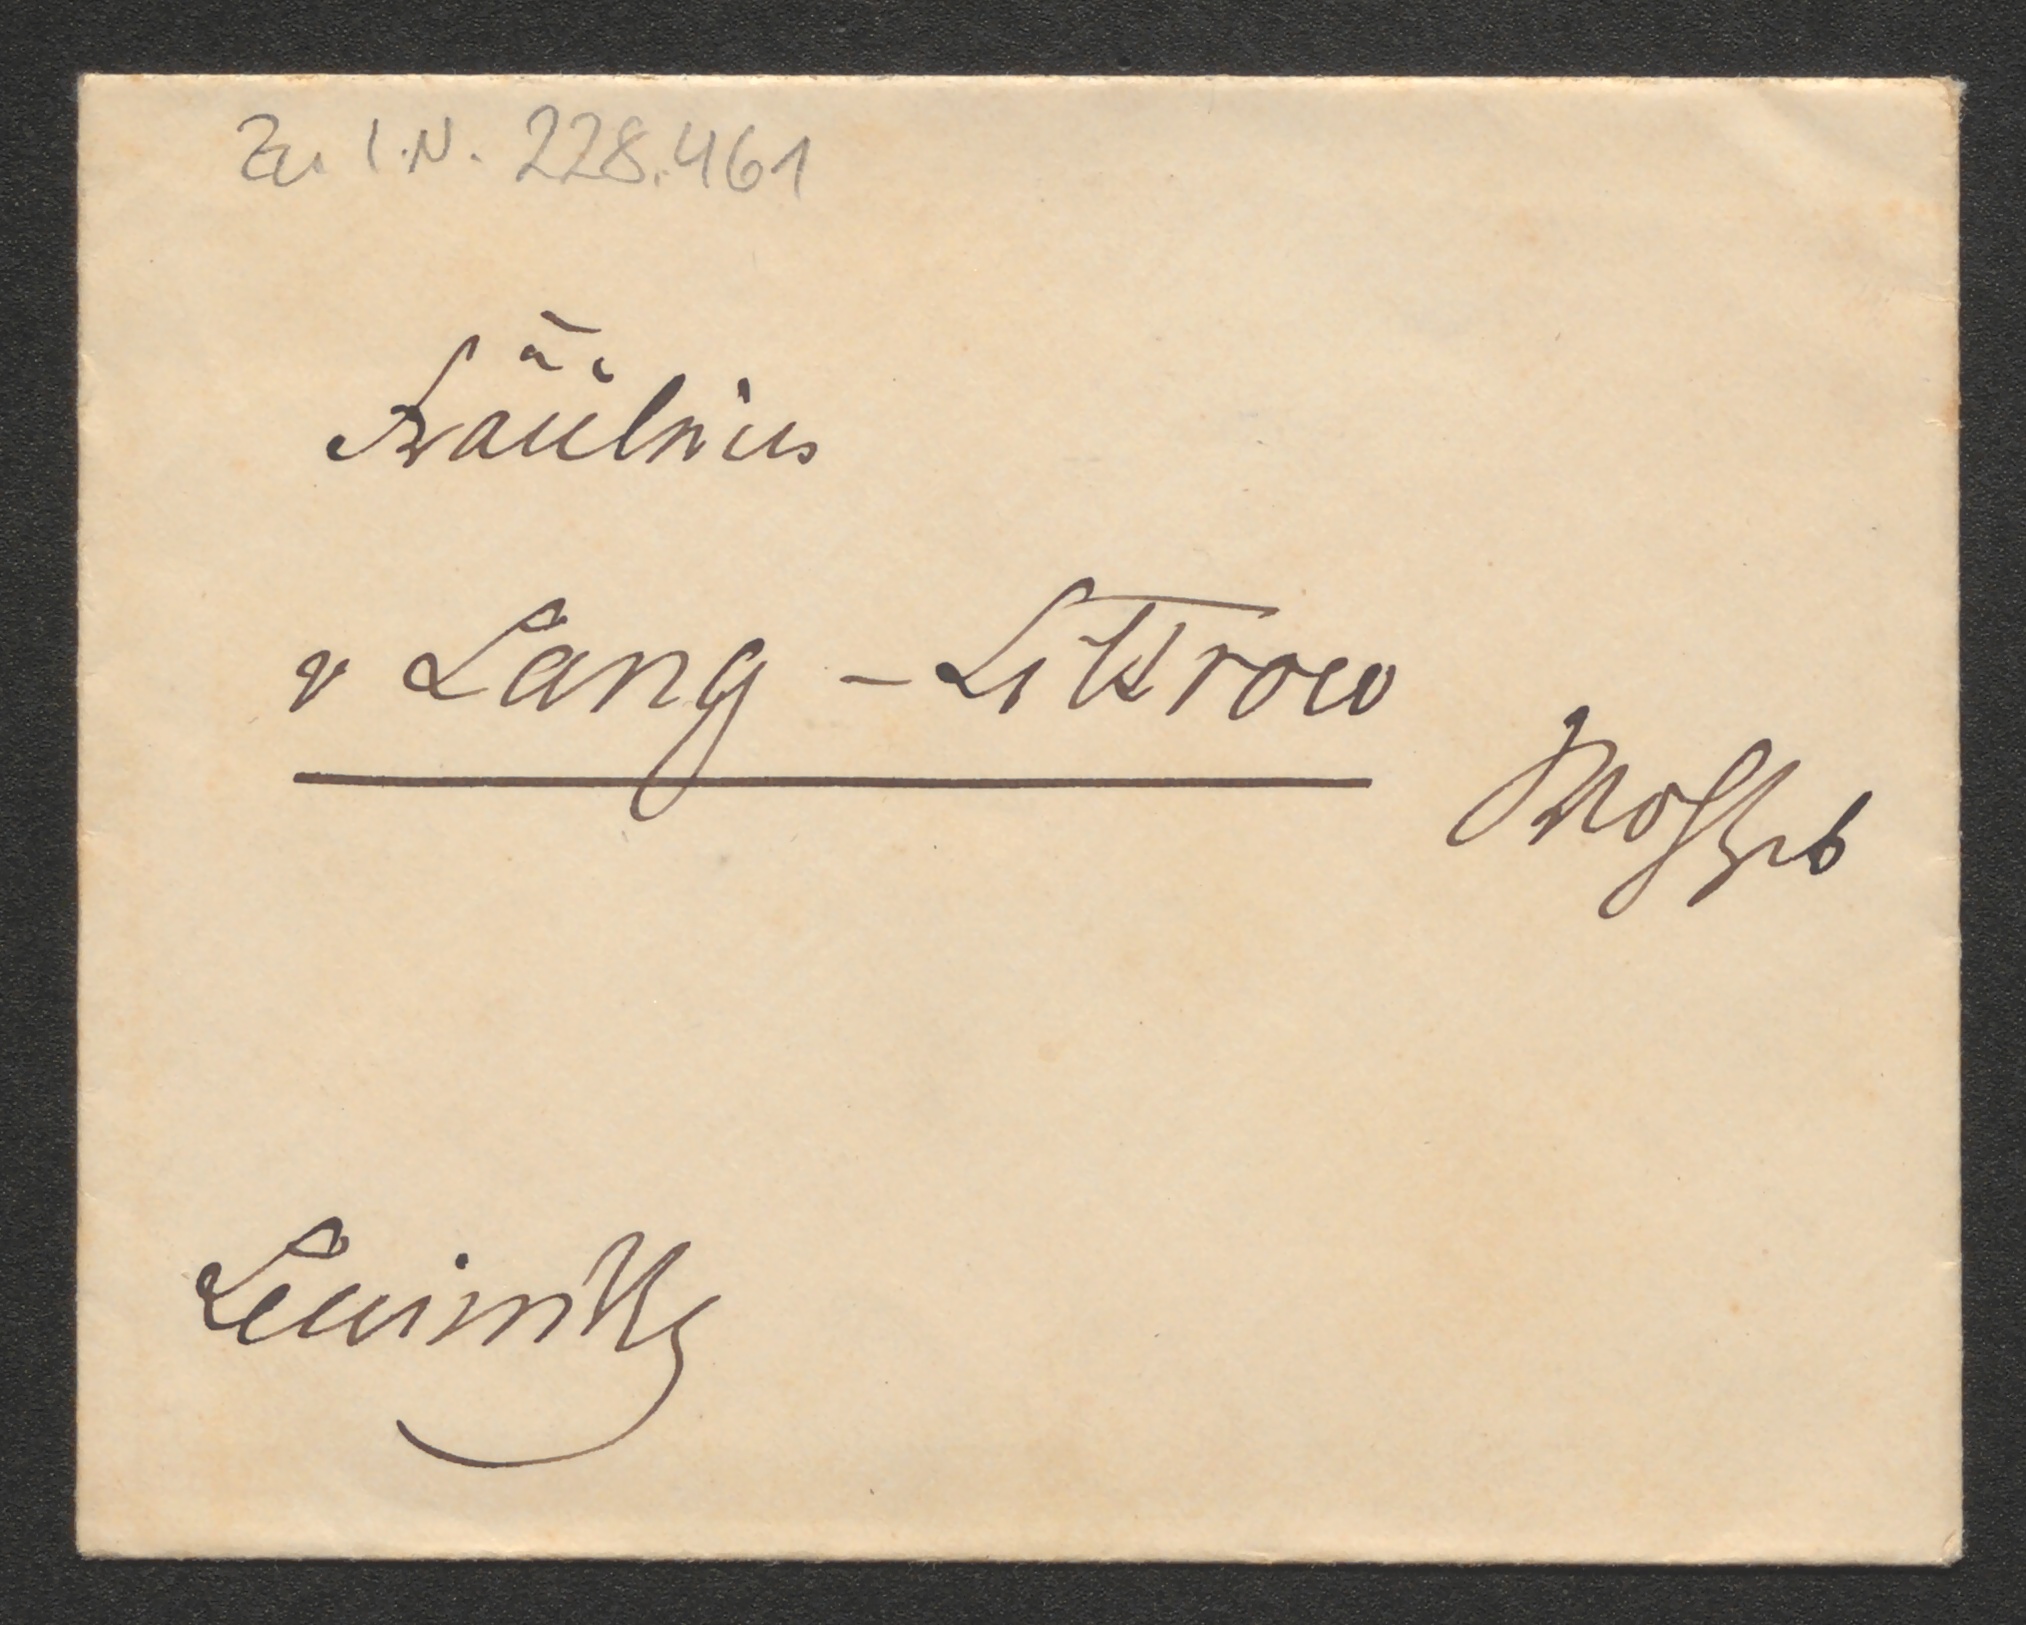 Zu I.N. 228.461
Fräulein
v Lang - Littrow
Wohlgeb
Lewinsky